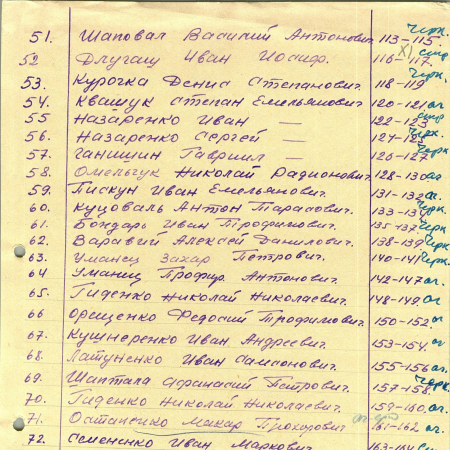 51. Шаповал Василий Антонович 113-115. Черк.
52 Длугаш Иван Иосиф. 116-117. стр
53. Курочка Денис Степанович. 118-119 Черк.
54. Квашук Степан Емельянович 120-121. ог
55 Назаренко Иван — 122-123 стр
56. Назаренко Сергей — 124-125 Черк.
57. Ганишин Гавриил — 126-127 Черк
58. Омельчук Николай Радионович 128-130 ог
59. Пискун Иван Емельянович. 131-132 ог.
60. Куцоваль Антон Тарасович. 133-134 Черк.
61. Бондарь Иван Трофимович. 135-137. Черк
62. Варавий Алексей Данилович. 138-139. Черк
63. Уманец Захар Петрович. 140-141 Черк.
64 Уманец Профир Антонович. 142-147 ог.
65. Гиденко Николай Николаевич. 148-149. ог
66 Орищенко Федосий Трофимович. 150-152. ог
67. Кушнеренко Иван Андреевич. 153-154. ог
68. Латуненко Иван Самсонович. 155-156 ог.
69. Шаптала Афанасий Петрович. 157-158. Черк.
70. Гиденко Николай Николаевич. 159-160. ог.
71. Остапенко Макар Прохорович 161-162. ог
72. Семененко Иван Маркович 163-164